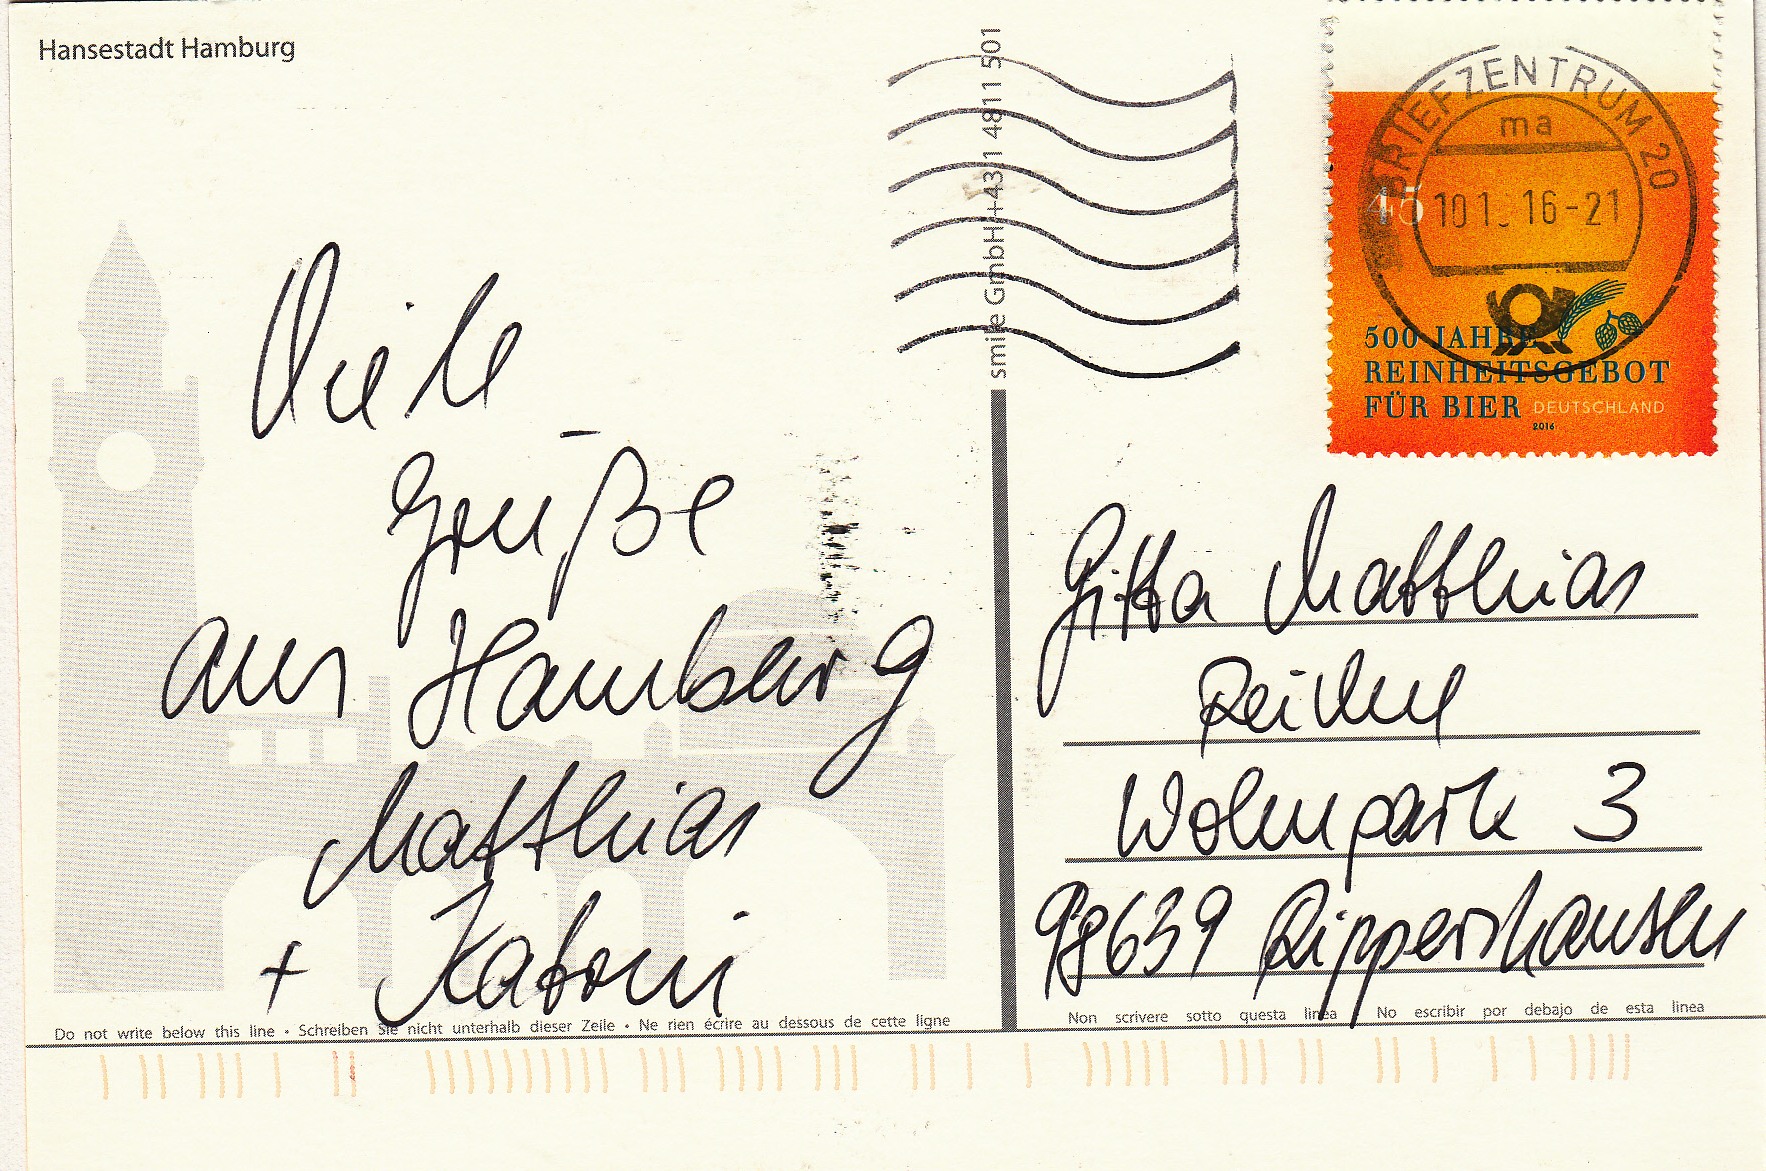 Hansestadt Hamburg
Viele
Grüße
aus Hamburg
Matthias
+ Katrin
smile GmbH +43 1 4811 501
BRIEFZENTRUM 20
ma
10 1. 16-21
45
500 JAHRE
REINHEITSGEBOT
FÜR BIER DEUTSCHLAND
2016
Gitta Matthias
Wohnpark 3
98639 Rippershausen
Do not write below this line • Schreiben Sie nicht unterhalb dieser Zeile • Ne rien écrire au dessous de cette ligne
Non scrivere sotto questa linea No escribir por debajo de esta linea